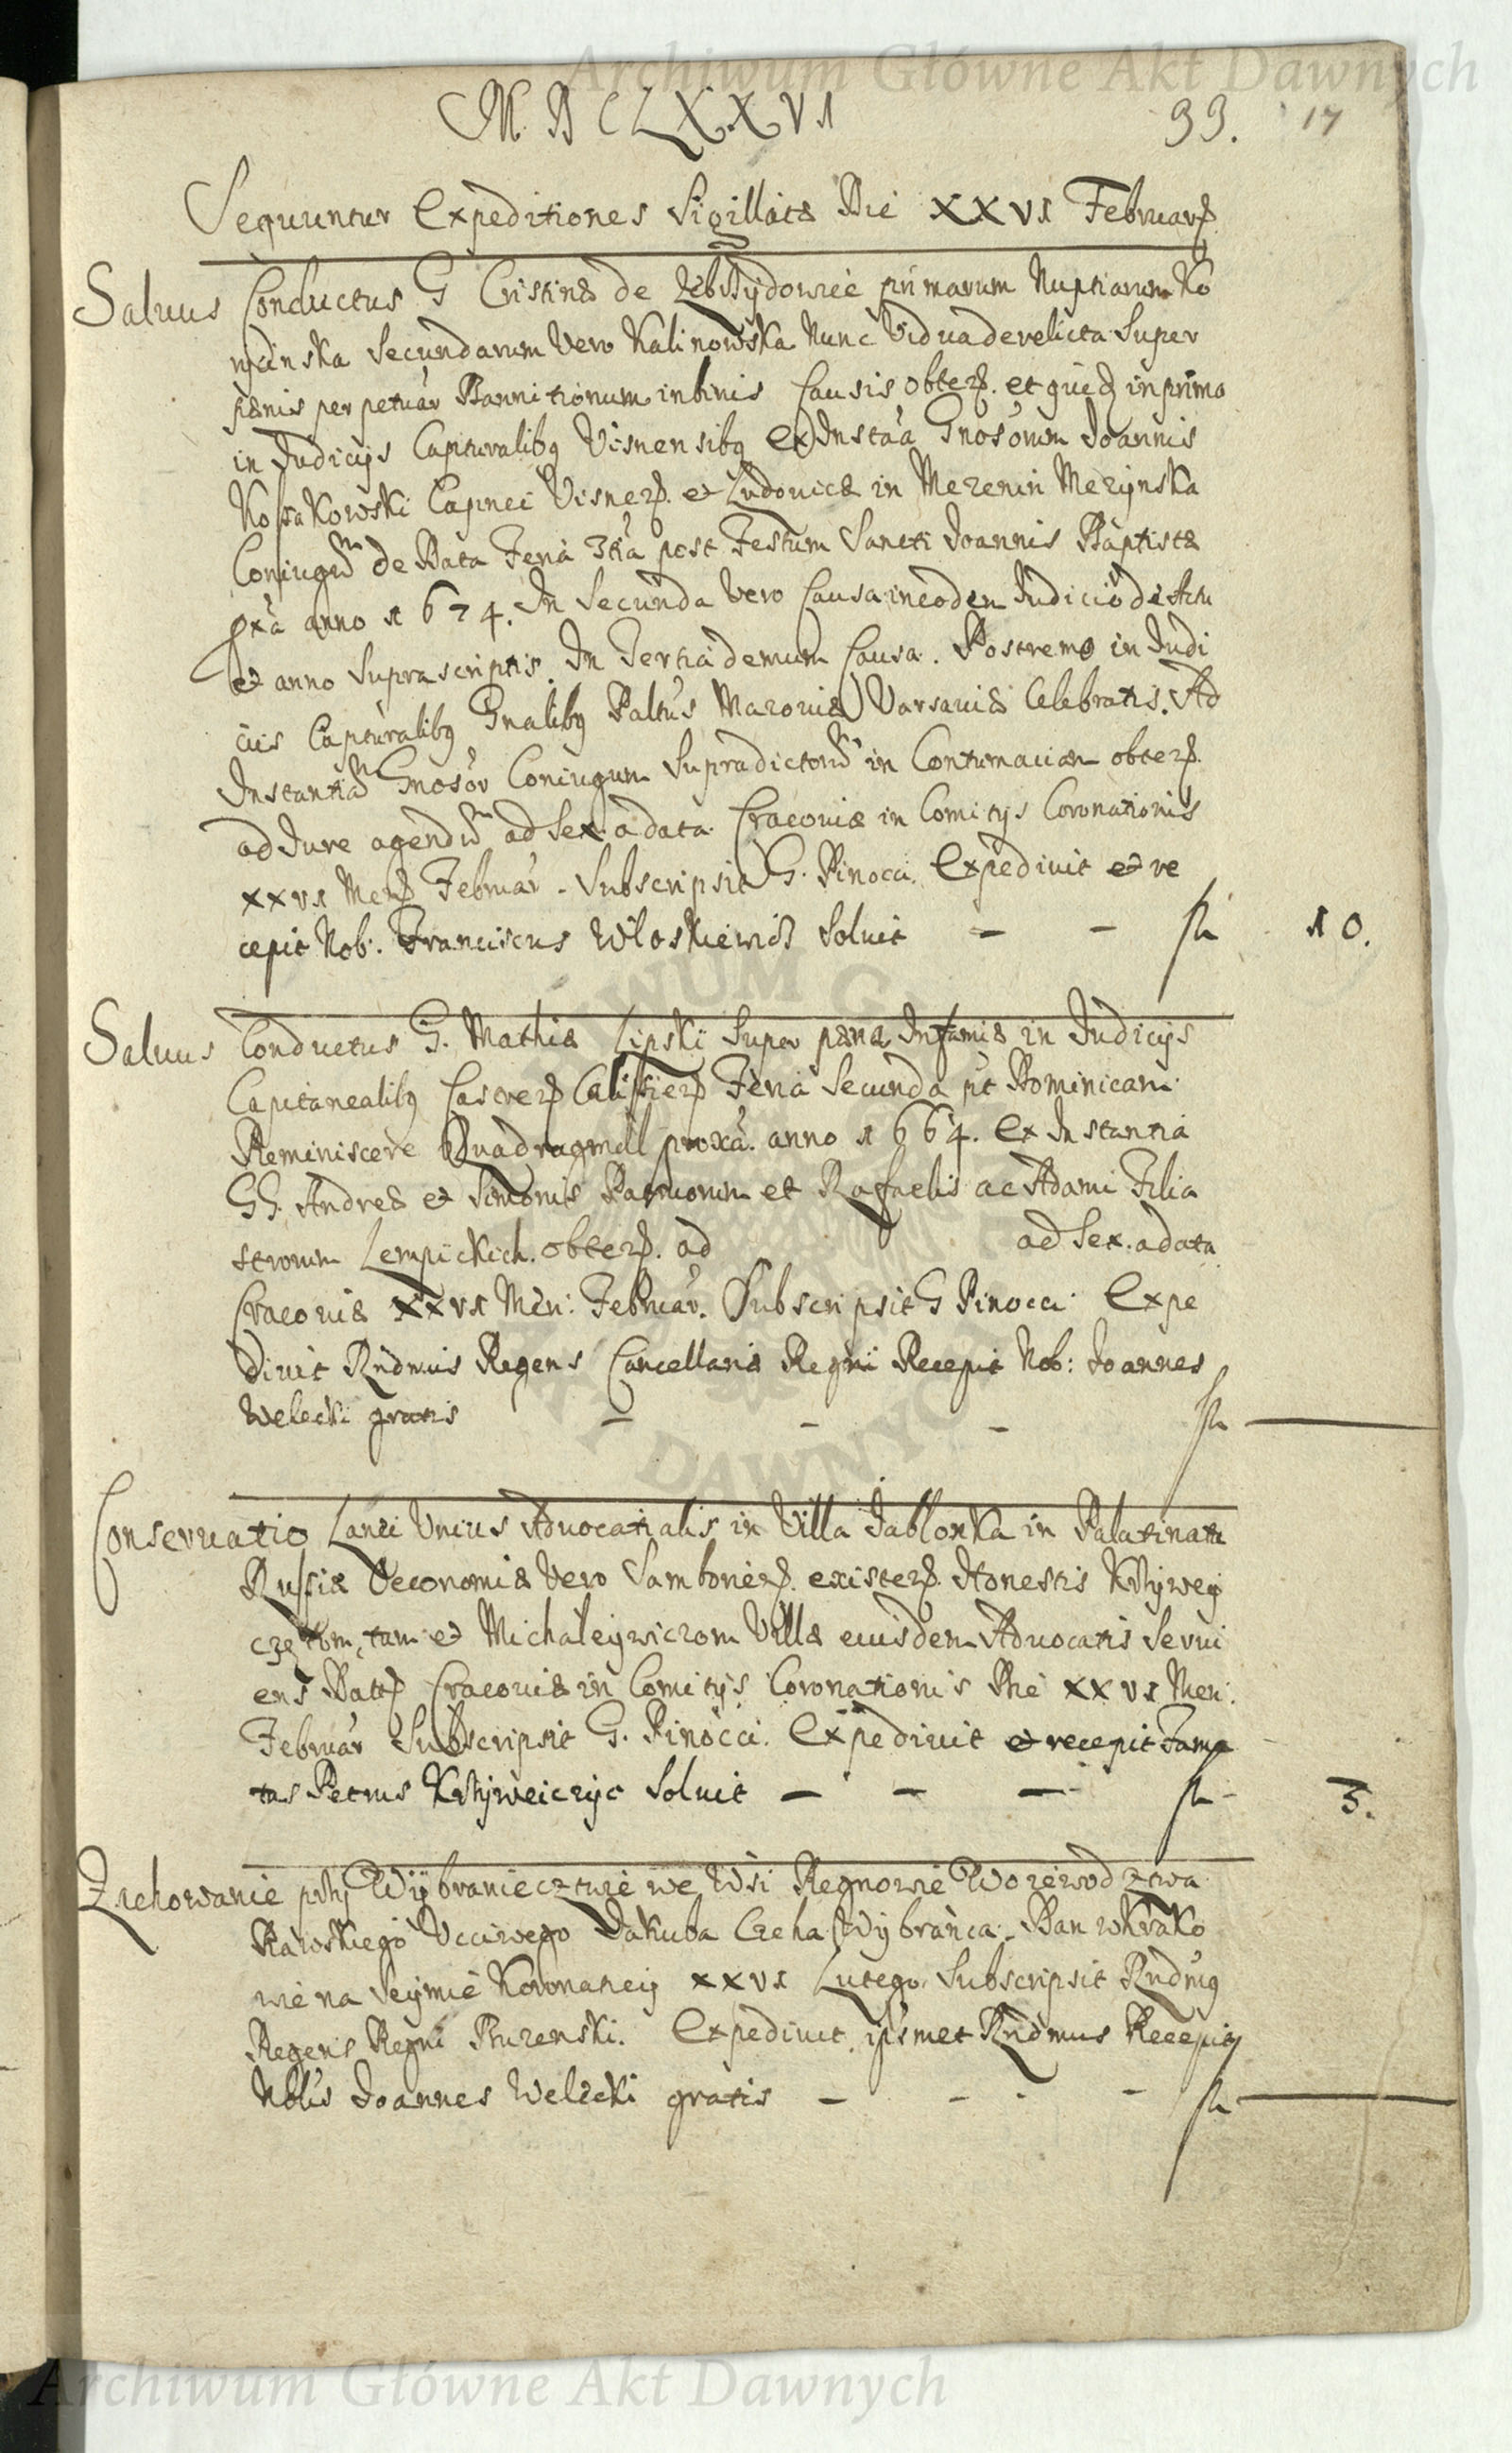 Archiwum Główne Akt Dawnych
M. D C L X X V I
99. 17
Sequuntur Expeditiones Sigillatæ Die XXVI Februarȷ
Saluus Conductus G Cristinæ de primarum Nuptiarum Ko
minska Secundarum Vero Kalinowska Nunc Vidua derelicta Super
pænis perpetuar Bannitionum in binis Causis obten. et quidē in prima
in Judicijs Capturalibq Visnensibq Ex Insta'a Gnosorum Joannis
Kossakowski Capnei Visnen. et Ludovicæ in Merenin Merynska
Coniugū de Data Feria 3tia post Festum Sancti Joannis Baptistæ
pxa anno 1674. In Secunda Vero Causa in eodem Judicio de Actu
et anno Supra scriptis. In Tertia demum Causa. Postremo in Judi
ciis Capturalibq Gnalibq Paltus Mazoviæ Varsaviæ Celebratis. Ad
Instantiā Gnosor Coniugum Supradictorū in Contumaciam obten.
ad Jure agendū ad Sex a data. Cracoviæ in Comitijs Coronationis
XXVI Men Februar. Subscripsit G. Pinocci. Expedivit et re
cepit Nob: Franciscus Wloskiewicz Soluit — — fl 10.
Saluus Conductus G. Mathiæ Lipski Super pæna Infamiæ in Judicijs
Capitanealibq Castren Calissien Feria Secunda pt Dominicam
Reminiscere Quadragmlē proxa. anno 1664. Ex Instantia
GG. Andreæ et Simonis Patruorum et Rafaelis ac Adami Filia
strorum Lempickich. obten. ad ad Sex. a data
Cracoviæ XXVI Men: Februar. Subscripsit G Pinocci. Expe
divit Rndmus Regens Cancellariæ Regni Recepit Nob: Joannes
Welecki gratis — — — fl —
Conservatio Lanei Unius Advocatialis in Villa Jablonka in Palatinatu
Russiæ Oeconomiæ Vero Samborien. existen. Honestis Krzywey
czętom, tam et Michaleywiczom Villæ eiusdem Advocatis Servi
ens Datt Cracoviæ in Comitijs Coronationis Die XXVI Men:
Februar Subscripsit G. Pinocci. Expedivit et recepit Fama
tus Petrus Krzyweiczyc Soluit — — — fl 3.
Zachowanie przy Wybranieczt wie we Wsi Regnowie Woiewodztwa
Rawskiego Uczciwego Jakuba Czeha Wybranca. Dan w Krako
wie na Seymie Koronacȳ XXVI Lutego. Subscripsit Rndmq
Regens Regni Burenski. Expedivit ipsmet Rndmus Recepit
Noblis Joannes Welecki gratis — — — fl —
Archiwum Główne Akt Dawnych